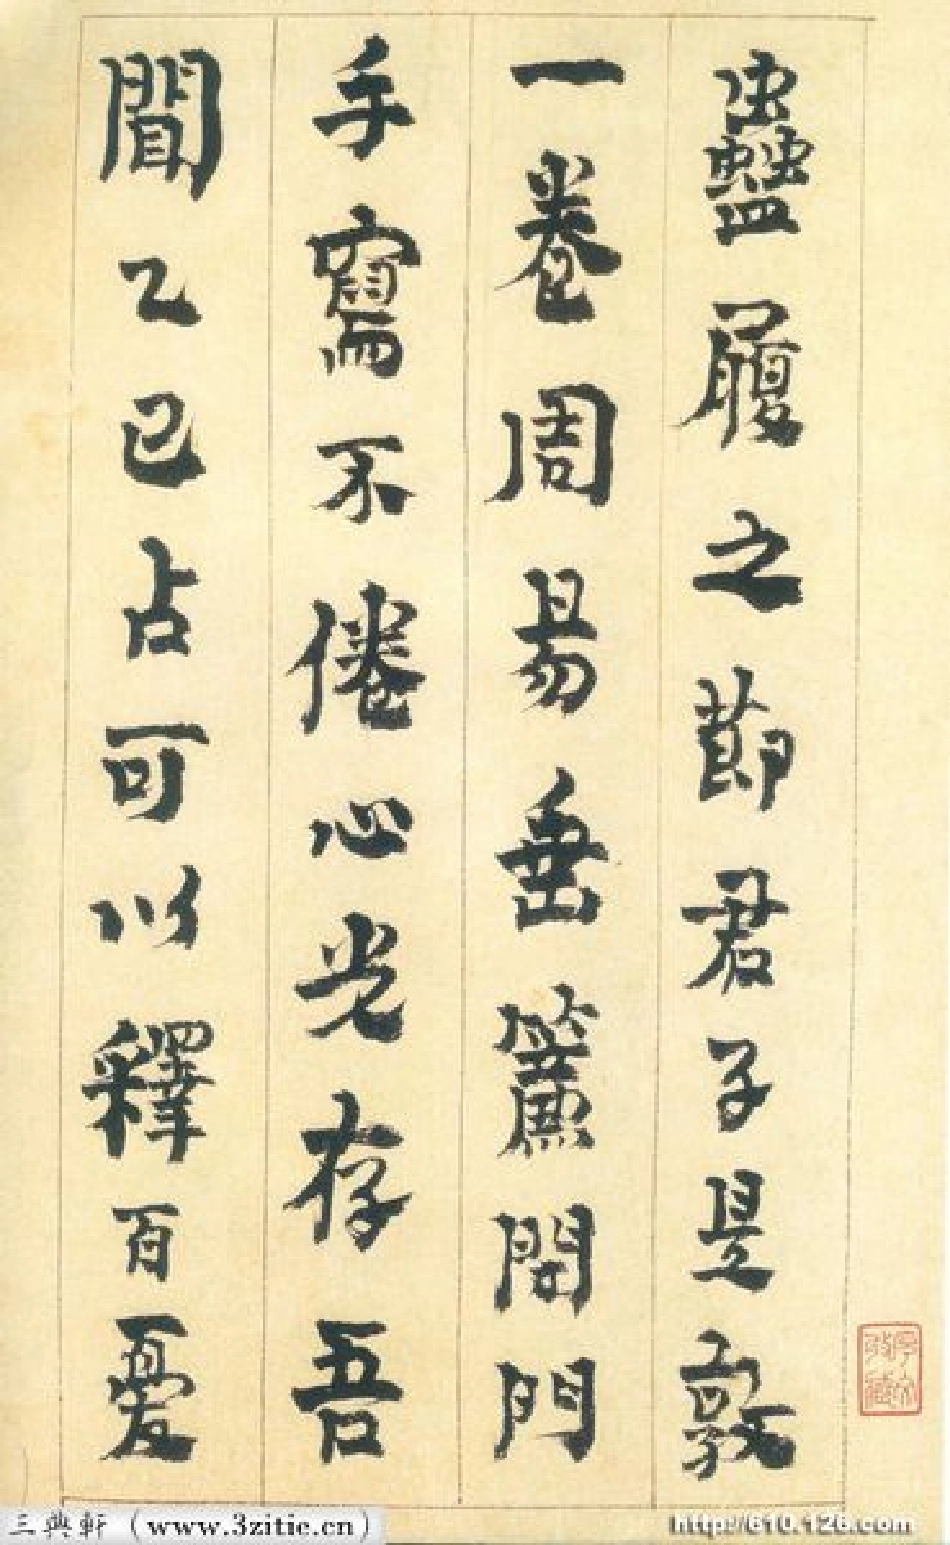 蠱履之節君子是敦
一卷周易垂簾閉門
手寫不倦心光存吾
聞乙巳占可以釋百憂
三典軒（www.3zitie.cn）
http://610.126.com